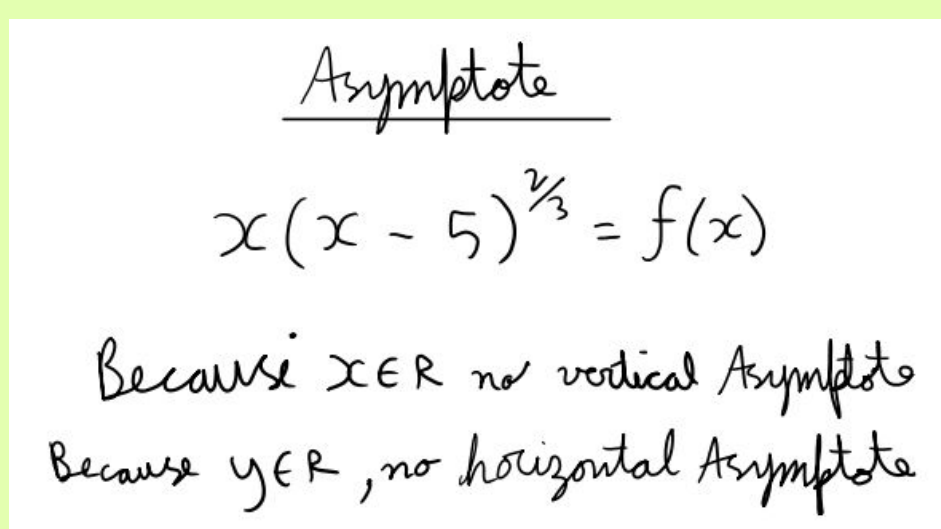 Asymptote
x(x - 5)^2/3 = f(x)
Because x∈R no vertical Asymptote
Because y∈R, no horizontal Asymptote